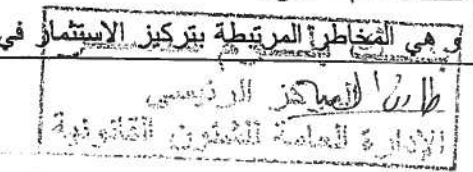 و هي المخاطر المرتبطة بتركيز الاستثمار في
الرئيسى
الإدارة العامة للشئون القانونية